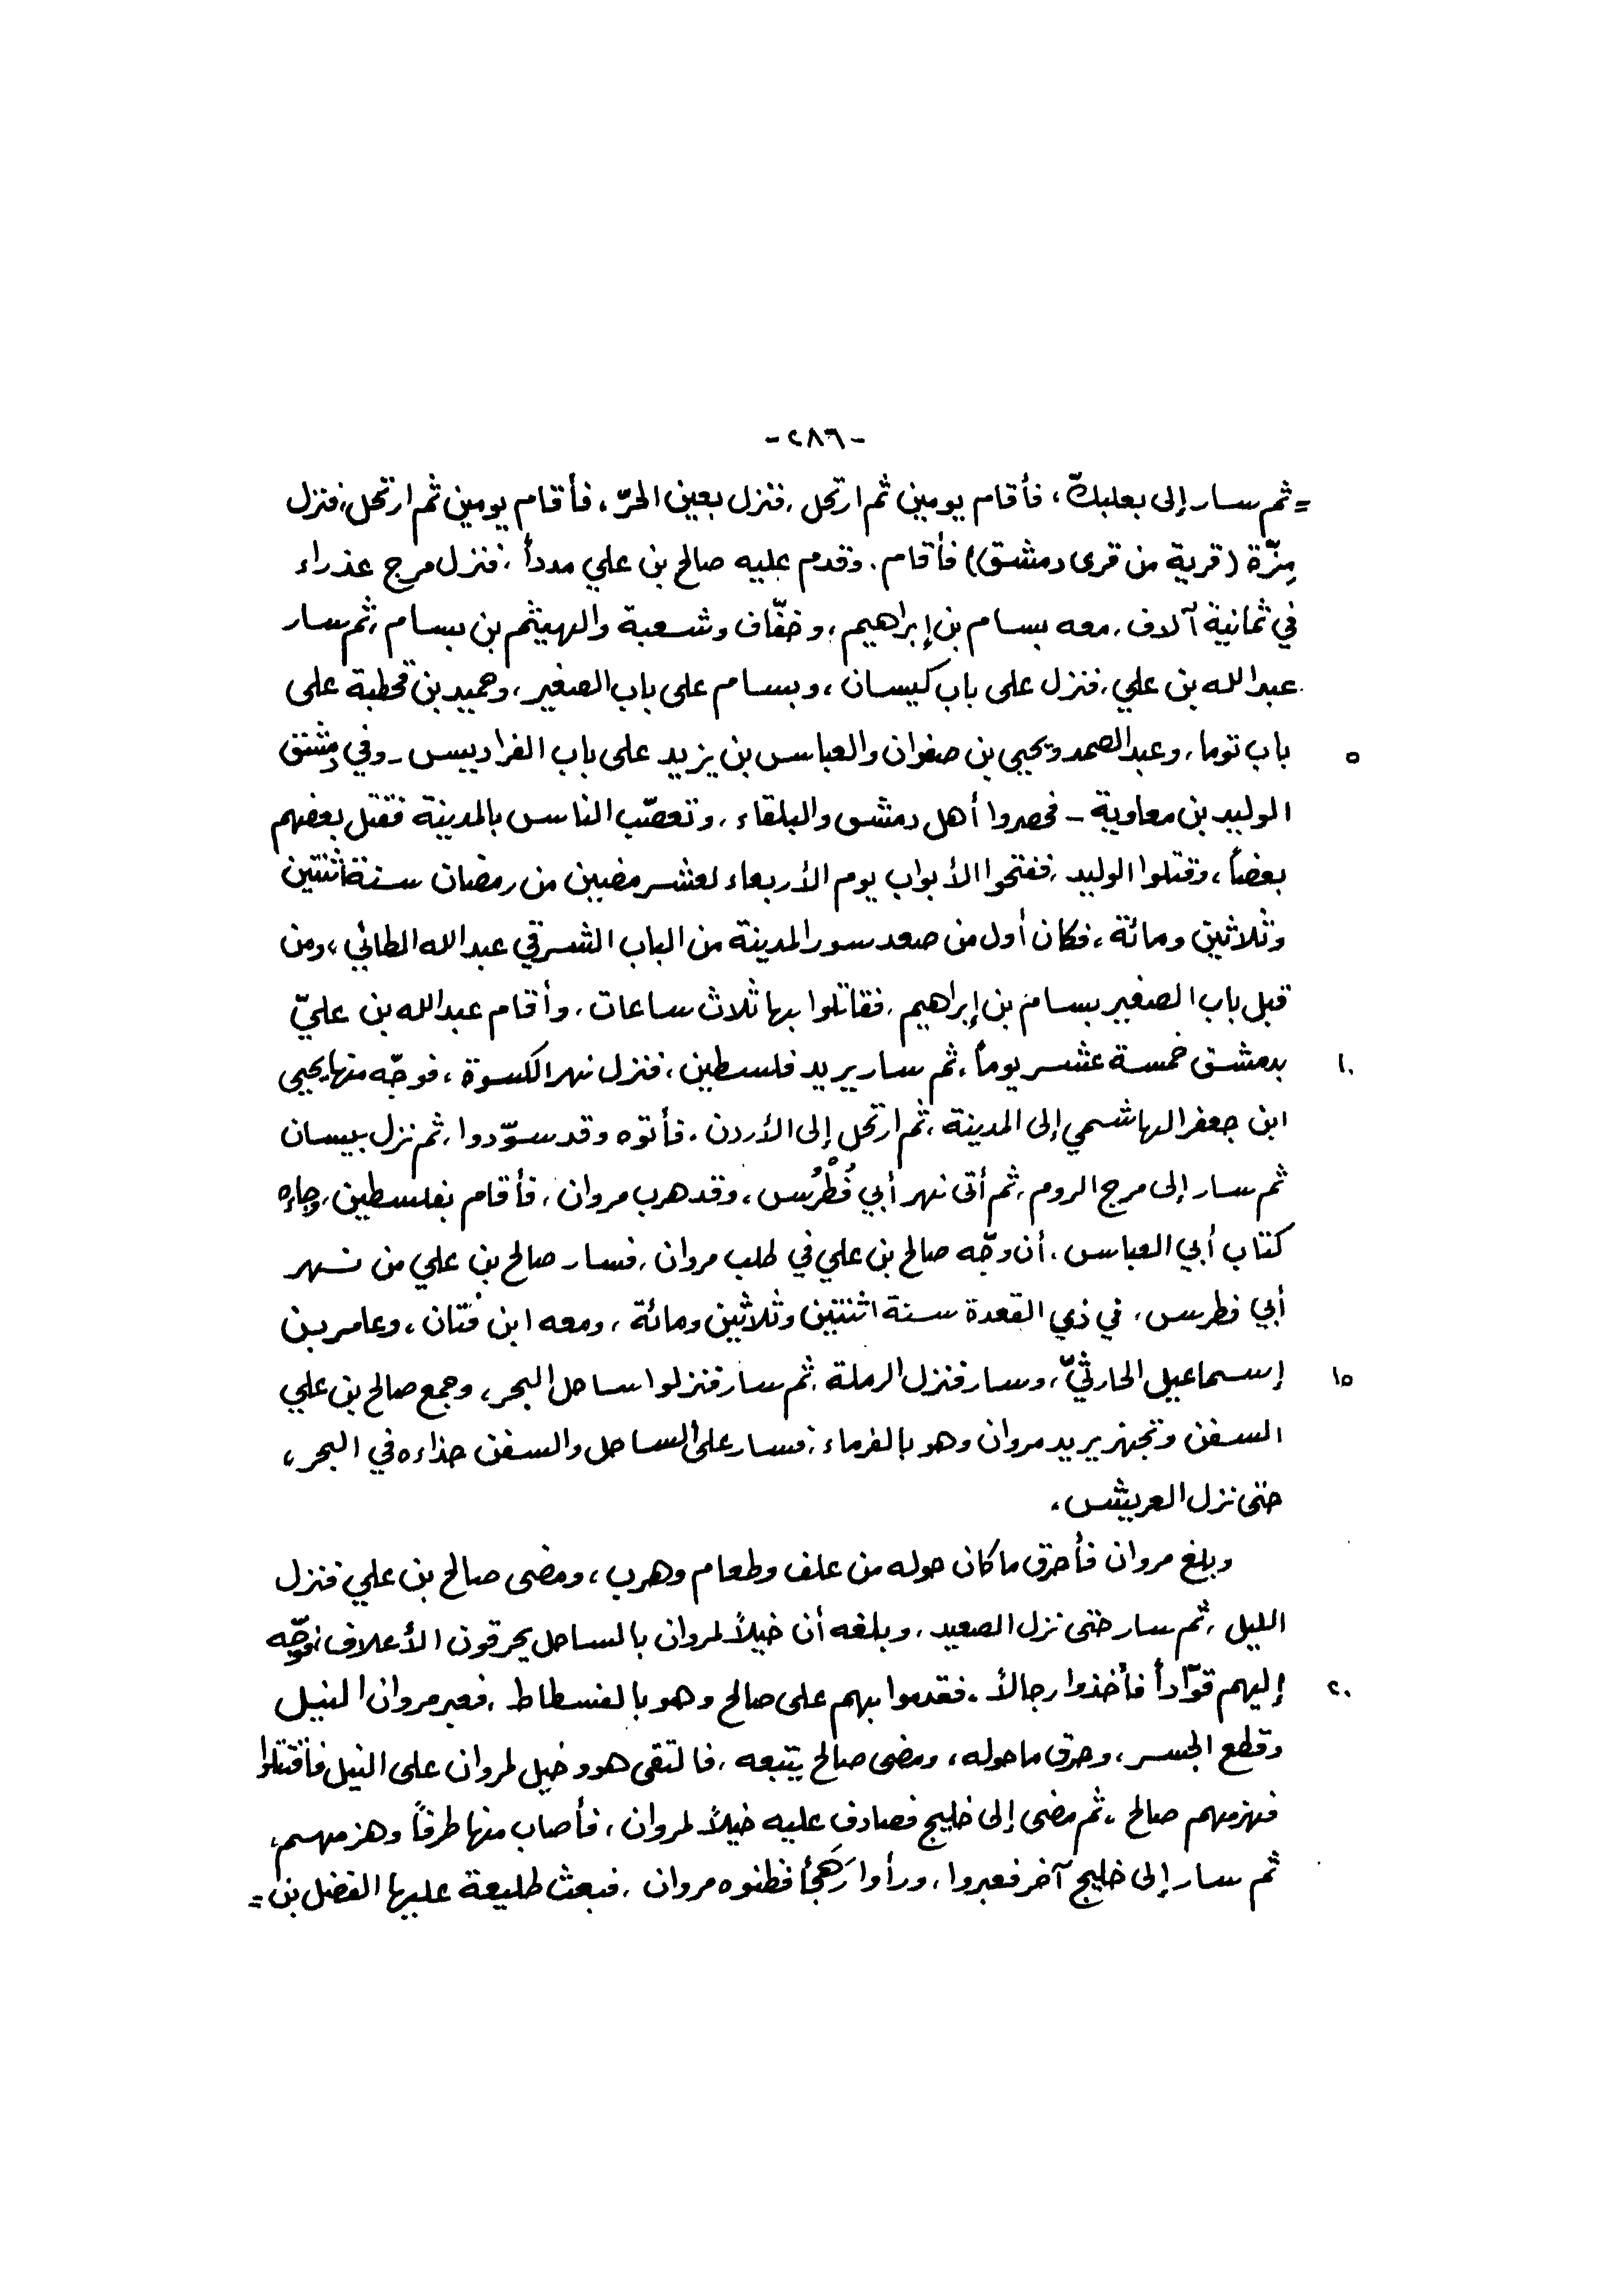 -٢٨٦-
= ثم سار إلى بعلبكّ، فأقام يومين ثم ارتحل، فنزل بعين الحرّ، فأقام يومين ثم ارتحل، فنزل
مِزّة (قرية من قرى دمشق)) فأقام. وقدم عليه صالح بن علي مدداً، فنزل مرج عذراء
في ثمانية آلاف، معه بسام بن إبراهيم، وخفّاف وشعبة والهيثم بن بسام، ثم سار
عبدالله بن علي، فنزل على باب كيسان، وبسام على باب الصغير، وحميد بن قحطبة على
باب توما، وعبدالصمد ويحيى بن صفوان والعباس بن يزيد على باب الفراديس - وفي دمشق ٥
الوليد بن معاوية - فحصروا أهل دمشق والبلقاء، وتعصّب الناس بالمدينة فقتل بعضهم
بعضاً، وقتلوا الوليد، ففتحوا الأبواب يوم الأربعاء لعشر مضين من رمضان سنة اثنتين
وثلاثين ومائة، فكان أول من صعد سور المدينة من الباب الشرقي عبدالله الطائي، ومن
قبل باب الصغير بسام بن إبراهيم، فقاتلوا بها ثلاث ساعات، وأقام عبدالله بن عليّ
بدمشق خمسة عشر يوماً، ثم سار يريد فلسطين، فنزل نهر الكسوة، فوجّه منها يحيى ١٠
ابن جعفر الهاشمي إلى المدينة، ثم ارتحل إلى الأردن، فأتوه وقد سوّدوا، ثم نزل بيسان
ثم سار إلى مرج الروم، ثم أتى نهر أبي فُطْرُس، وقد هرب مروان، فأقام بفلسطين، وجاءه
كتاب أبي العباس، أن وجّه صالح بن علي في طلب مروان، فسار صالح بن علي من نهر
أبي فطرس، في ذي القعدة سنة اثنتين وثلاثين ومائة، ومعه ابن فتان، وعامر بن
إسماعيل الحارثيّ، وسار فنزل الرملة، ثم سار فنزلوا ساحل البحر، وجمع صالح بن علي ١٥
السفن وتجهز يريد مروان وهو بالفرماء، فسار على الساحل والسفن حذاءه في البحر،
حتى نزل العريش.
وبلغ مروان فأحرق ما كان حوله من علف وطعام وهرب، ومضى صالح بن علي فنزل
الليل، ثم سار حتى نزل الصعيد، وبلغه أن خيلاً لمروان بالساحل يحرقون الأعلاف، فوجّه
إليهم قوّاداً فأخذوا رجالاً، فقدموا بهم على صالح وهو بالفسطاط، فعبر مروان النيل ٢٠
وقطع الجسر، وحرق ما حوله، ومضى صالح يتبعه، فالتقى هو وخيل لمروان على النيل فاقتتلوا
فهزمهم صالح، ثم مضى إلى خليج فصادف عليه خيلاً لمروان، فأصاب منها طرفاً وهزمهم،
ثم سار إلى خليج آخر فعبروا، ورأوا رَهَجاً فظنوه مروان، فبعث طليعة عليها الفضل بن =